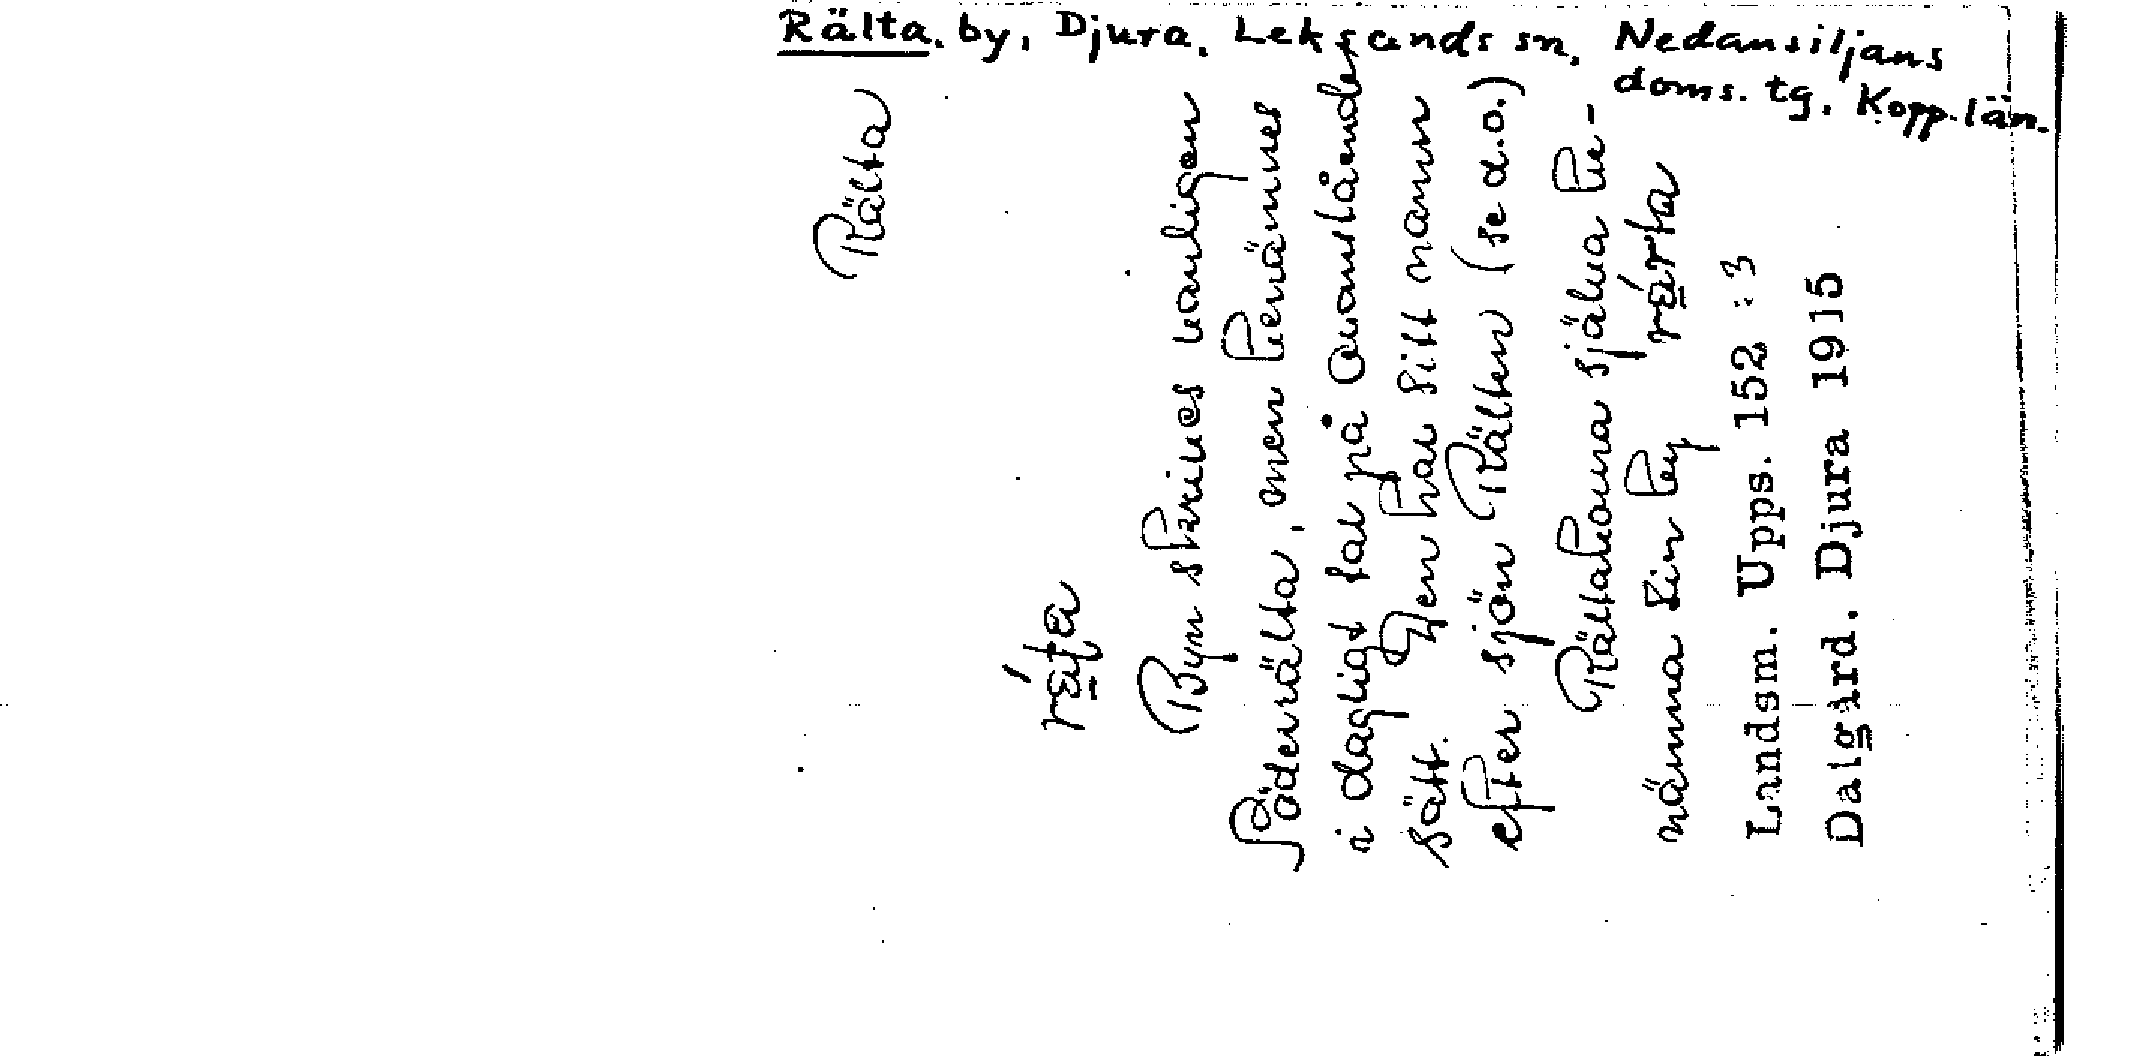 Rälta. by, Djura. Leksands sn. Nedansiljans
doms. tg. Kopp. län.
Rälta
Byn skrives vanligen
Söderrälta, men benämnes
i dagligt tal på ovanstående
sätt. Den har sitt namn
efter sjön Rälten (se d.o.)
Rältaborna själva be-
nämna sin by rárta
Landsm. Upps. 152 :3
Dalgård. Djura 1915